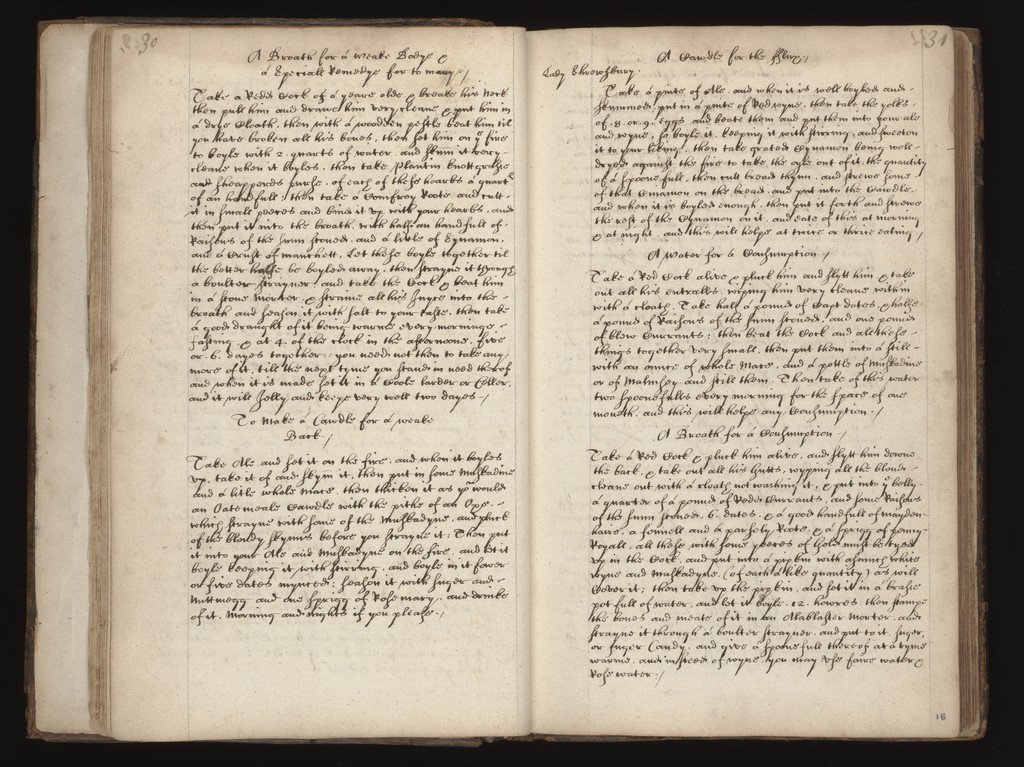 30
A Broath for a weake Body &
a Speciall Remedye for to many /
Take a Redd Cock of a yeare olde & breake his Neck
then pull him and drawe him very cleane & put him in
a drye Cloath, then with a wooden pestle beat him til
you have broken all his bones, then set him on ye fire
to boyle with 2 quarts of water, and skim it very
cleane when it boyles, then take Plantin knottgrasse
and sheappards purse, of each of these hearbs a quartr
of an handfull, then take a Comfrey Roote and cutt
it in small peeces and bind it up with your hearbs, and
then put it into the broath, with half an handfull of
Raisons of the sunn stoned, and a little of Synamon,
and a Crust of manchett, Let these boyle together til
the better halfe be boyled away, then strayne it through
a boulter strayner, and take the Cock & beat him
in a stone Morter & straine all his Juyce into the
broath and season it with salt to your taste, then take
a good draught of it being warme every morninge
fasting & at 4 of the clock in the afternoone, five
or 6 dayes together, you neede not then to take any
more of it, till the next tyme you stand in need therof
and when it is made set it in a Coole larder or Celler,
and it will Jelly and keepe very well two dayes /
To Make a Caudle for a weake
Back /
Take Ale and set it on the fire, and when it boyles
up, take it of and skym it, then put in some Muskadine
and a litle whole Mace, then thicken it as yo would
an Oatemeale Cawdle with the pithe of an Oxe,
which strayne with some of the Muskadyne, and pluck
of the bloudy skynns before you strayne it, Then put
it into your Ale and Muskadyne on the fire, and let it
boyle keeping it with stirring, and boyle in it fower
or five dates mynced; season it with suger and
Nuttmegg and one sprigg of Rosemary, and drinke
of it, Morning and nights if you please /
31
A Cawdle for the Flux /
Lady Shrewsbury.
Take a pinte of Ale, and when it is well boyled and
skummed, put in a pinte of Red wyne, then take the yolks
of 8 or 9 eggs and beate them and put them into your ale
and wyne, so boyle it, keeping it with stirring, and sweeten
it to your liking, then take grated Cynamon being well
dryed against the fire to take the oyle out of it, the quantity
of a spoonefull, then cutt bread thynn, and strewe some
of that Cinamon on the bread, and put into the Cawdle,
and when it is boyled enough, then put it forth and strewe
the rest of the Cynamon on it, and eate of this at morning
& at night, and this will helpe at twice or thrice eating /
A Water for a Consumption /
Take a Red Cock alive & pluck him and slytt him & take
out all his entralls, wiping him very cleane within
with a cloath, Take half a pound of Capt dates, & halfe
a pound of Raisons of the sunn stoned, and one pound
of blew Currants; then beat the Cock and all these
things together very small, then put them into a still
with an ounce of whole Mace, and a pottle of Muskadine
or of Malmsey and still them. Then take of this water
two spoonefulls every morning for the space of one
month, and this will helpe any Consumption /
A Broath for a Consumption /
Take a Red Cock & pluck him alive, and slytt him downe
the back, & take out all his Gutts, wyping all the bloud
cleane out with a cloath not washing it, & put into ye belly
a quarter of a pound of Redd Currants, and some Raisons
of the sunn stoned, 6 dates, & a good handfull of mayden
haire, a fennell and a parsely Roote, & a sprigg of penny
Royall, all these with some peeces of Gold must be tyed
up in the Cock, and put into a pipkin with white
wyne and Muskadyne, (of each a like quantity) as will
Cover it; then take up the pipkin, and set it in a brasse
pot full of water, and let it boyle 12 howres, then stampe
the bones and meate of it in an Alablaster Morter, and
strayne it through a boulter strayner, and put to it suger,
or suger Candy, and give a spoonefull thereof at a tyme
warme, and insteed of wyne, you may use faire water &
Rose water /
18